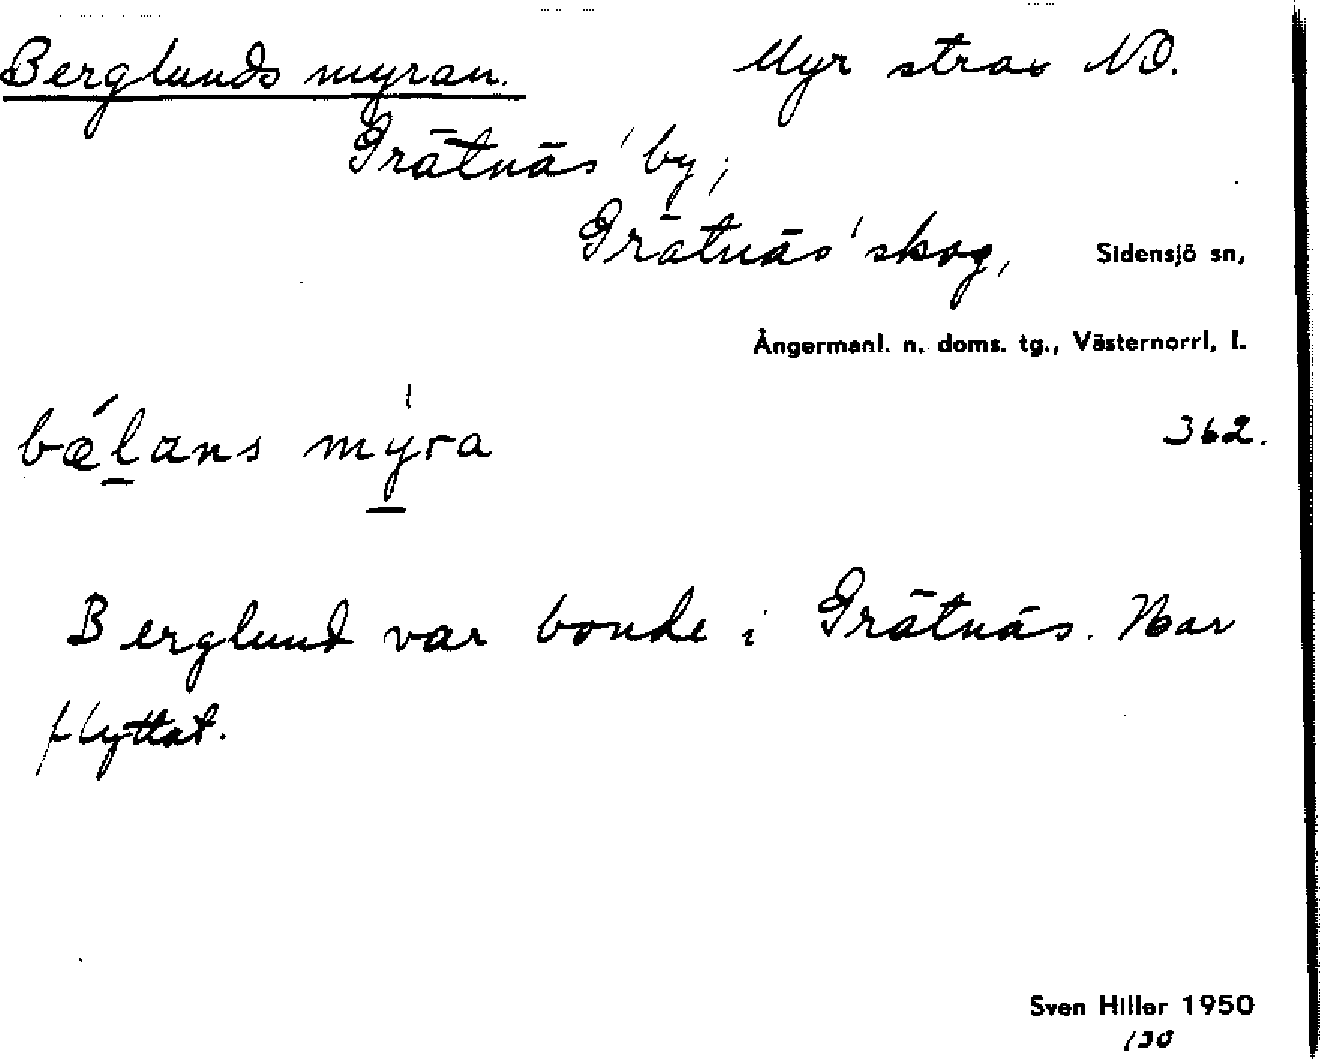 Berglunds myran. Myr strax NO.
Grätnäs' by,
Grätnäs' skog, Sidensjö sn,
Ångermanl. n. doms. tg., Västernorrl. l.
bǽlans mýra 362.
Berglund var bonde i Grätnäs. Har
flyttat.
Sven Hiller 1950
130